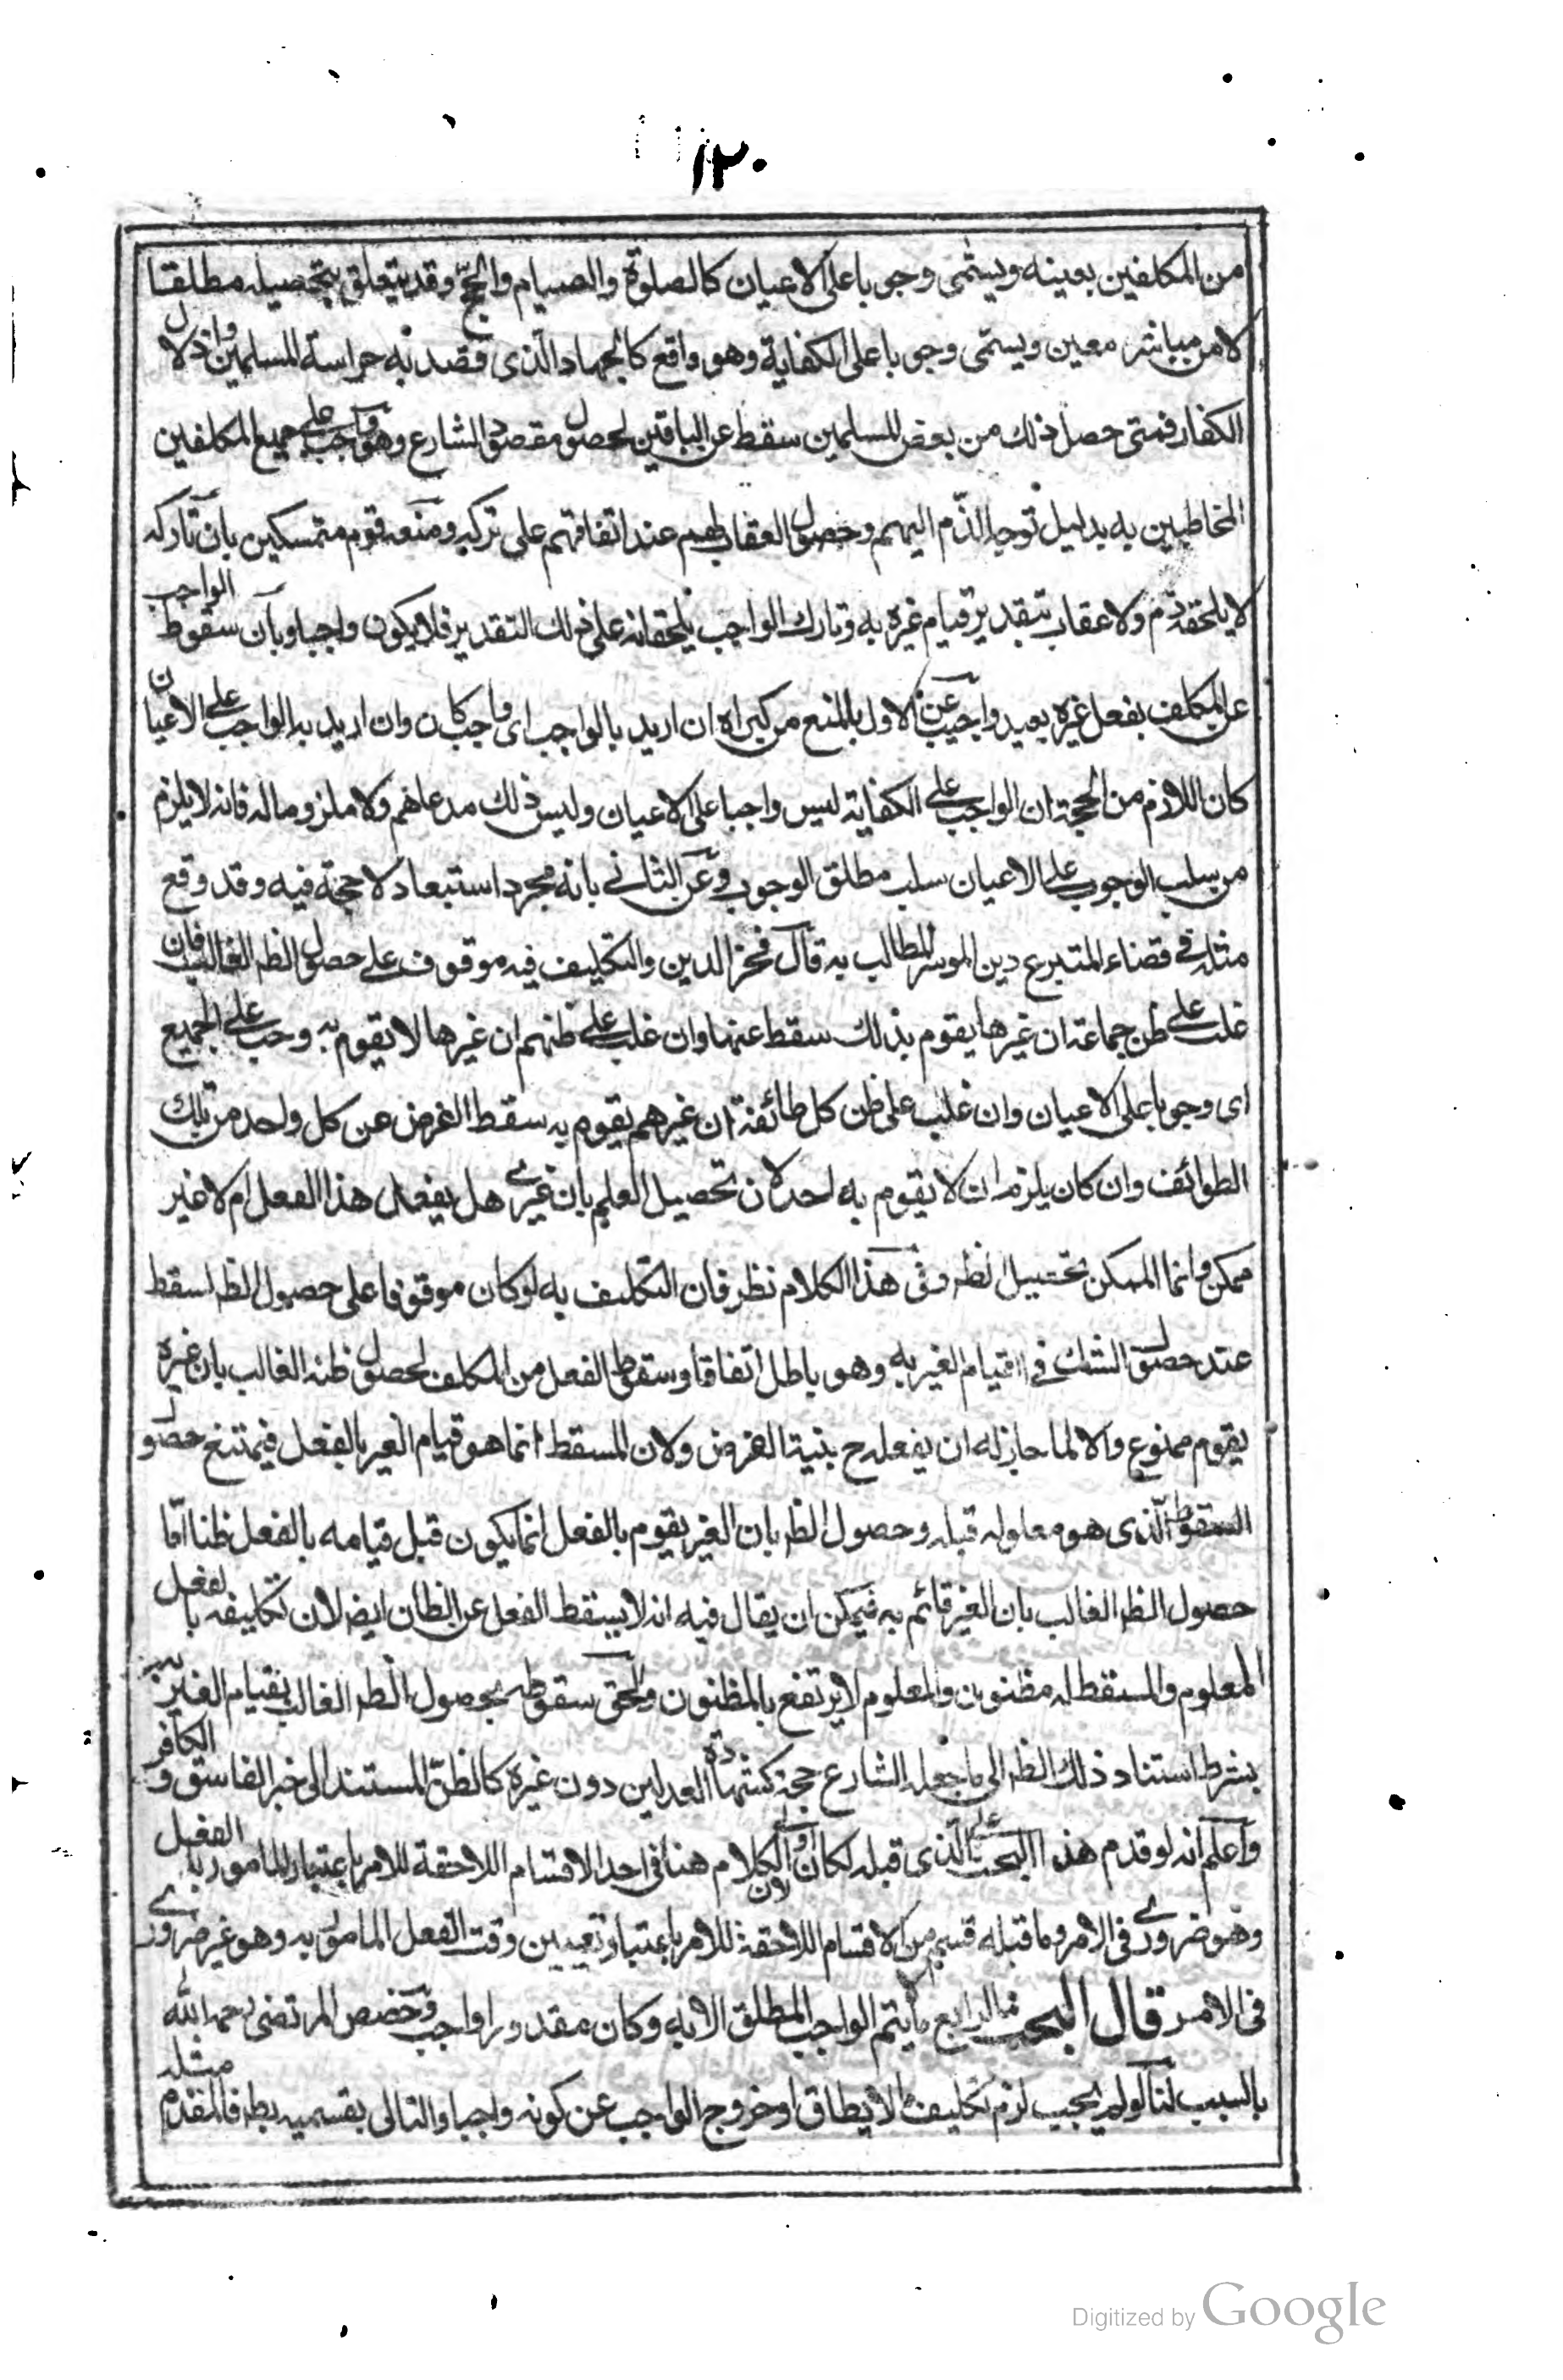 ١٢٠
من المكلفين بعينه ويسمى وجوبا على الاعيان كالصلوة والصيام والحج وقد يتعلق بتحصيله مطلقا
لا من مباشر معين ويسمى وجوبا على الكفاية وهو واقع كالجهاد الذى قصد به حراسة المسلمين واذلال
الكفار فمتى حصل ذلك من بعض المسلمين سقط عن الباقين لحصول مقصود الشارع وهو واجب على جميع المكلفين
المخاطبين به بدليل توجه الذم اليهم وحصول العقاب لهم عند اتفاقهم على تركه ومنعه قوم متمسكين بان تاركه
لا يلحقه ذم ولا عقاب بتقدير قيام غيره به وتارك الواجب يلحقانه على ذلك التقدير فلا يكون واجبا وبان سقوط الواجب
عن المكلف بفعل غيره بعيد واجيب عن الاول بالمنع من كبراه ان اريد بالواجب اى واجب كان وان اريد به الواجب على الاعيان
كان اللازم من الحجة ان الواجب على الكفاية ليس واجبا على الاعيان وليس ذلك مدعاهم ولا ملزوما له فانه لا يلزم
من سلب الوجوب على الاعيان سلب مطلق الوجوب وعن الثانى بانه مجرد استبعاد لا حجة فيه وقد وقع
مثله فى قضاء المتبرع دين الموسر المطالب به قال فخر الدين والتكليف فيه موقوف على حصول الظن الغالب فان
غلب على ظن جماعة ان غيرها يقوم بذلك سقط عنها وان غلب على ظنهم ان غيرها لا تقوم به وجب على الجميع
اى وجوبا على الاعيان وان غلب على ظن كل طائفة ان غيرهم يقوم به سقط الفرض عن كل واحد من تلك
الطوائف وان كان يلزم ان لا يقوم به احد لان تحصيل العلم بان غيرى هل يفعل هذا الفعل ام لا غير
ممكن وانما الممكن تحصيل الظن وفى هذا الكلام نظر فان التكليف به لو كان موقوفا على حصول الظن لسقط
عند حصول الشك فى قيام الغير به وهو باطل اتفاقا وسقوط الفعل من المكلف لحصول ظنه الغالب بان غيره
يقوم ممنوع والا لما جاز له ان يفعله ح بنية الفرض ولان المسقط انما هو قيام الغير بالفعل فيمتنع حصو
السقوط الذى هو معلوله قبله وحصول الظن بان الغير يقوم بالفعل انما يكون قبل قيامه بالفعل ظنا اما
حصول الظن الغالب بان الغير قائم به فيمكن ان يقال فيه انه لا يسقط الفعل عن الظان ايضا لان تكليفه بالفعل
المعلوم والمسقط له مظنون والمعلوم لا يرتفع بالمظنون والحق سقوطه بحصول الظن الغالب بقيام الغير به
بشرط استناد ذلك الظن الى ما جعله الشارع حجة كشهادة العدلين دون غيره كالظن المستند الى خبر الفاسق والكافر
واعلم انه لو قدم هذا البحث على الذى قبله لكان اولى لان الكلام هنا فى احد الاقسام اللاحقة للامر باعتبار المامور بالفعل
وهو ضرورى فى الامر وما قبله قسم من الاقسام اللاحقة للامر باعتبار تعيين وقت الفعل المامور به وهو غير ضرورى
فى الامر قال البحث الرابع ما لا يتم الواجب المطلق الا به وكان مقدورا واجب وخصص المرتضى رحمه الله
بالسبب لنا لو لم يجب لزم تكليف ما لا يطاق او خروج الواجب عن كونه واجبا والتالى بقسميه بط فالمقدم مثله
Digitized by Google